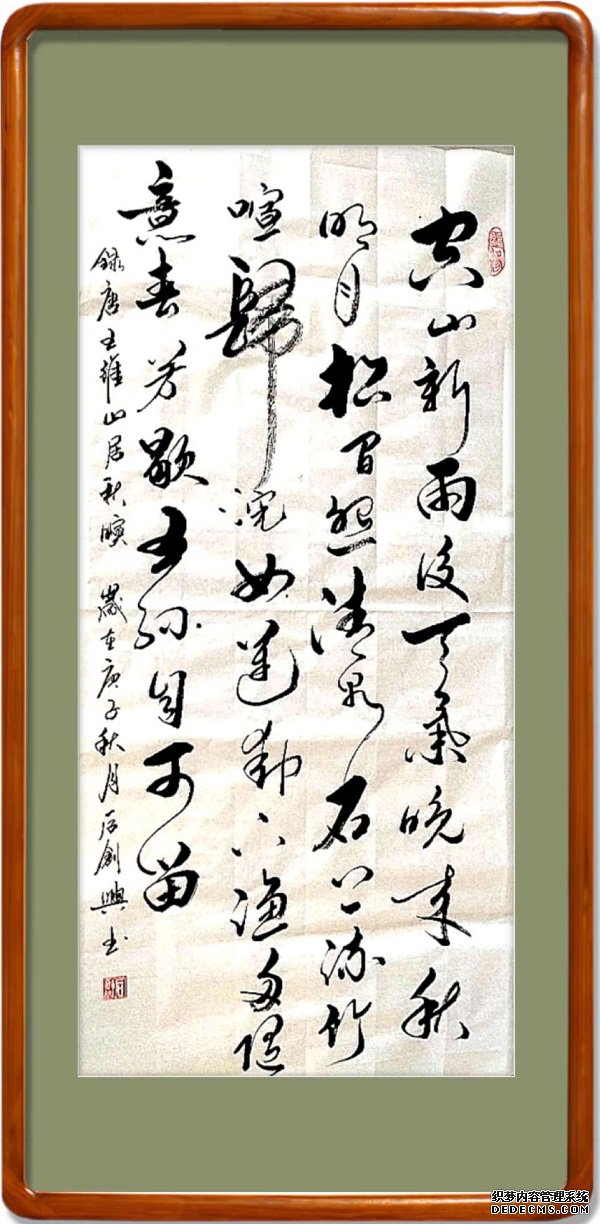 空山新雨後天氣晚来秋
明月松間照清泉石上流竹
喧歸浣女蓮動下漁舟隨
意春芳歇王孫自可留
録唐王維山居秋暝 歲在庚子秋月石創興书
织梦内容管理系统
DEDECMS.COM